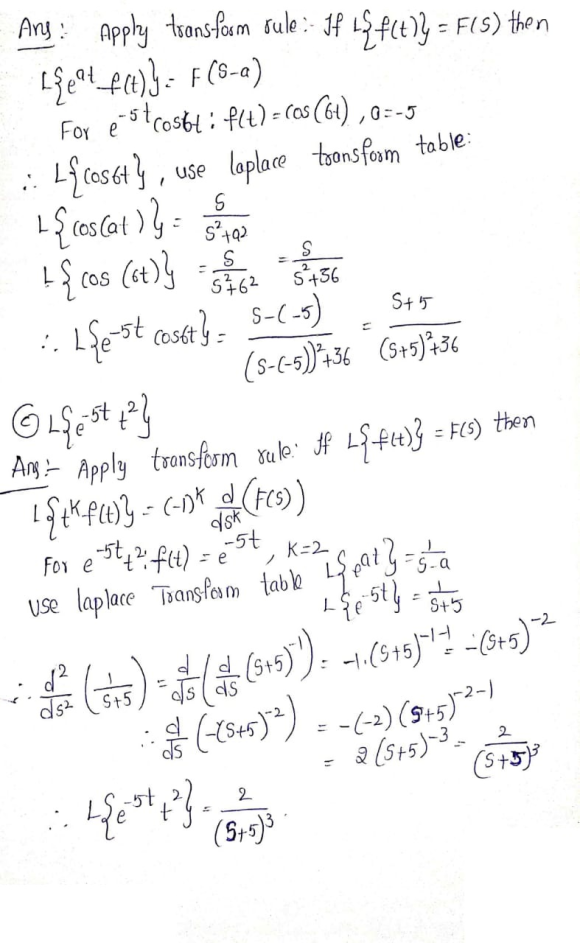 Ans: Apply transform rule:- If L{f(t)} = F(S) then
L{e^at f(t)} = F(S-a)
For e^-5t cos6t : f(t) = cos(6t), a=-5
∴ L{cos6t}, use laplace transform table:
L{cos(at)} = S/(S²+a²)
L{cos(6t)} = S/(S²+6²) = S/(S²+36)
∴ L{e^-5t cos6t} = (S-(-5))/((S-(-5))²+36) = (S+5)/((S+5)²+36)
© L{e^-5t t²}
Ans:- Apply transform rule: If L{f(t)} = F(S) then
L{t^k f(t)} = (-1)^k d/ds^k (F(S))
For e^-5t t²: f(t) = e^-5t, K=2
use laplace Transform table L{e^at} = 1/(S-a)
L{e^-5t} = 1/(S+5)
∴ d²/ds² (1/(S+5)) = d/ds (d/ds (S+5)^-1) = -1.(S+5)^-1-1 = -(S+5)^-2
∴ d/ds (-(S+5)^-2) = -(-2)(S+5)^-2-1
= 2(S+5)^-3 = 2/(S+5)³
∴ L{e^-5t t²} = 2/(S+5)³.